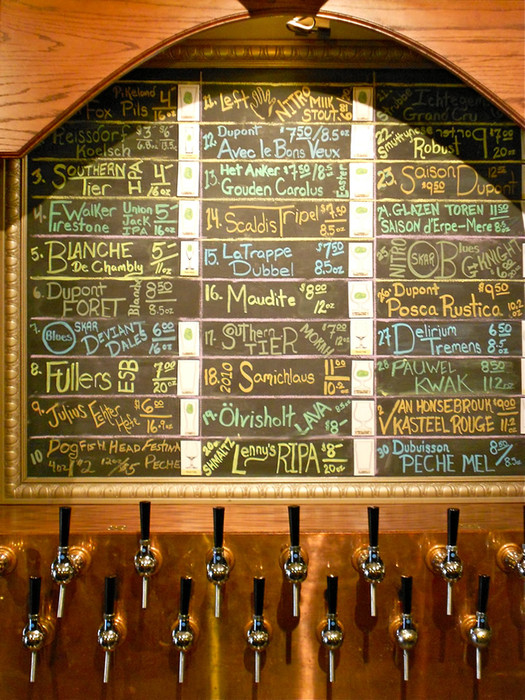 Pikeland
Fox Pils 4
Reissdorf $3 $6
Koelsch
3. SOUTHERN 4
Tier 16oz
4. FWalker Union 5
Firestone Jack
IPA 16oz
5. BLANCHE 5-
De Chambly 11oz
6. Dupont 8.50
FORET Blanche 8.5oz
7. SKAR DEVIANT 6.00
Blues DALES 16oz
8. Fullers ESB 7.00
20oz
9. Julius Echter $6.00
Hefe 16.9oz
10 DOGFISH HEAD FESTINA
4oz $2 12oz $5 PECHE
11. Left NITRO MILK
STOUT
12. Dupont $7.50/8.5oz
Avec le Bons Veux
13. Het Anker $7.50/8.5
Gouden Carolus Easter
14. Scaldis Tripel $7.50
8.5oz
15. LaTrappe $7.50
Dubbel 8.5oz
16. Maudite $8.00
12oz
17. SOUTHERN $7.00
TIER MOKAH 12oz
18. 2010 Samichlaus 11.00
10.2oz
19. Ölvisholt LAVA
$8-
20. SHMALTZ Lenny's RIPA $8-
20oz
Ichtegem
Grand Cru
22. Smuttynose 9 7.00
Robust 20oz
23. SAISON
$9.50 Dupont
24. GLAZEN TOREN 11.50
SAISON d'Erpe-Mere 8.5oz
25. NITRO SKAR Blues
G-KNIGHT
6.00
26. Dupont $9.50
Posca Rustica 10.2oz
27 Delirium 6.50
Tremens 8.5oz
28 PAUWEL 8.50
KWAK 11.2oz
VAN HONSEBROUK $9.00
KASTEEL ROUGE 11.2oz
30 Dubuisson 8.50
PECHE MEL 8.5oz